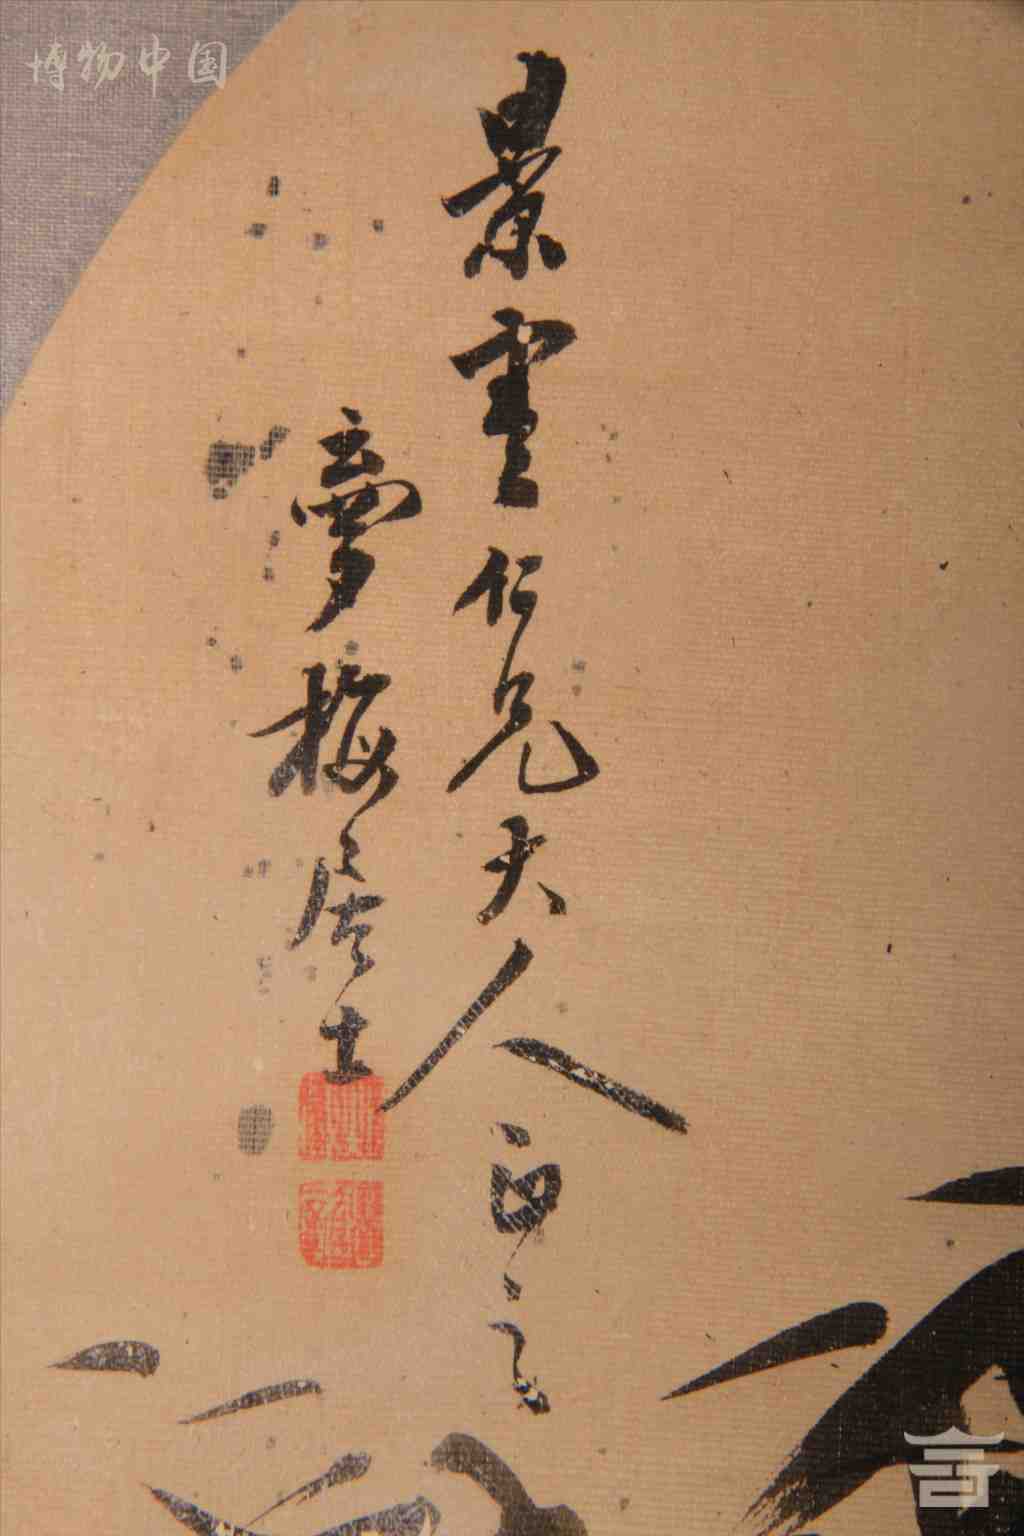 博物中国
景雲仁兄大人正之
夢梅居士